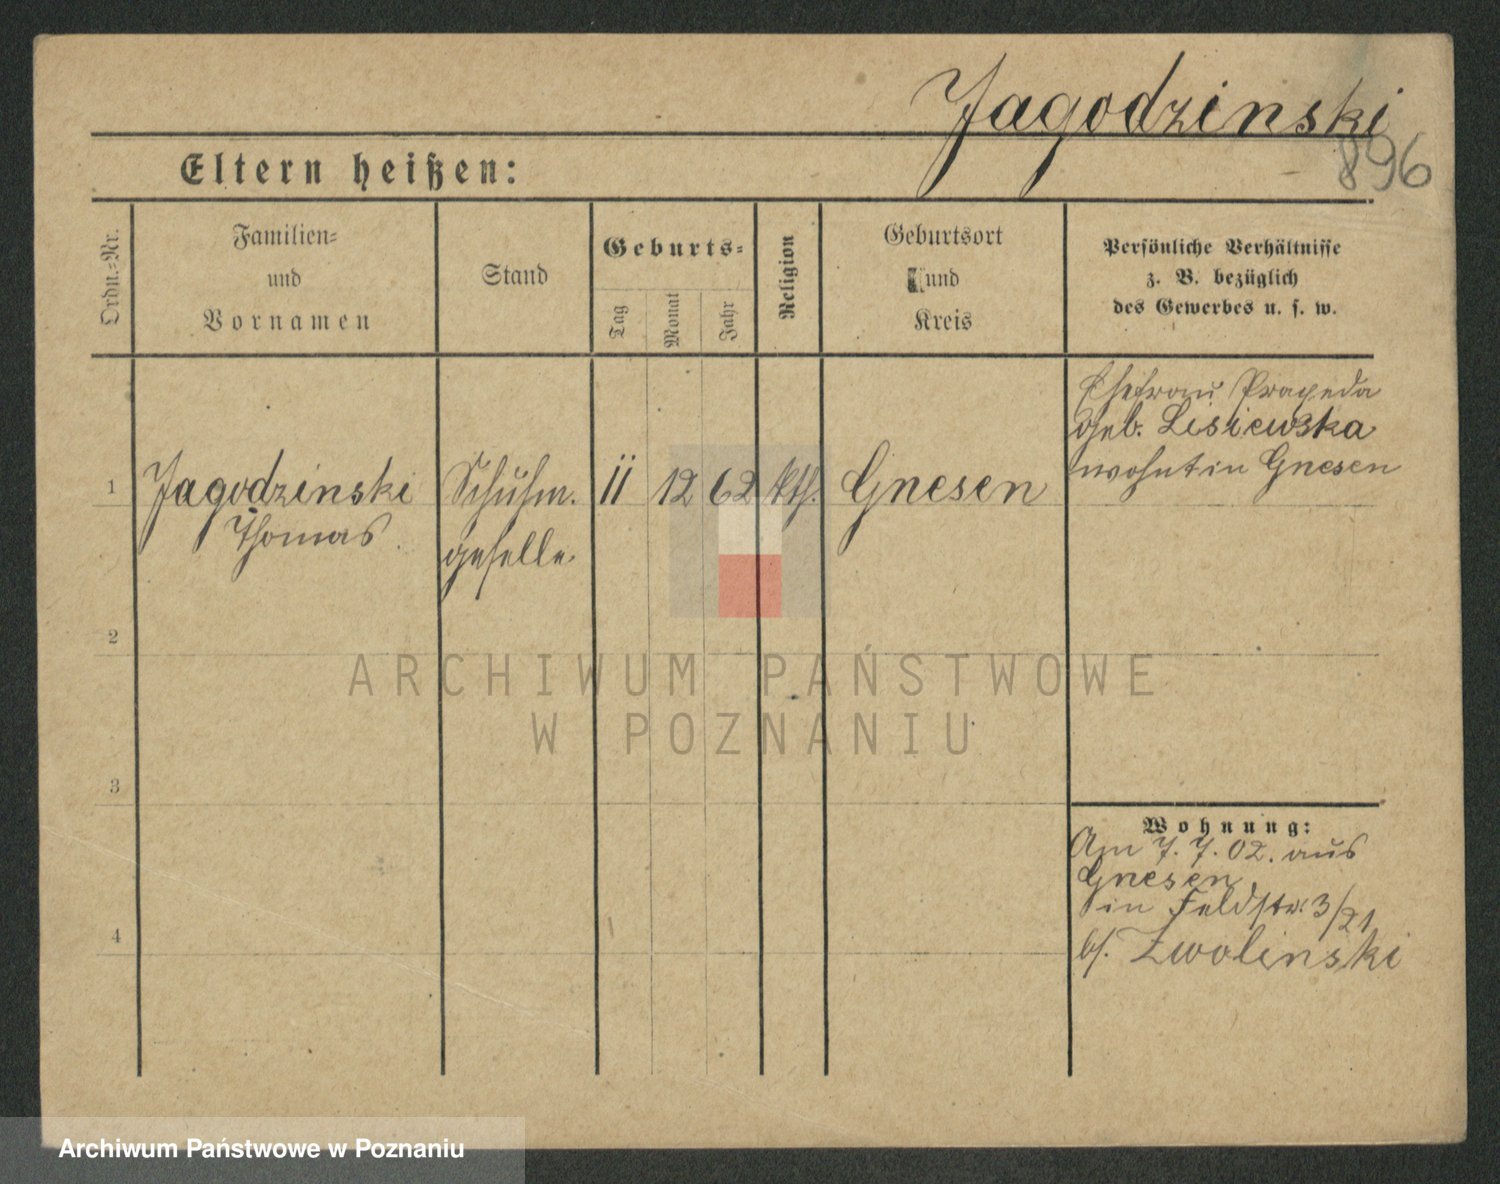 Jagodzinski
896
Eltern heißen:
Ordn.-Nr.
Familien-
und
Vornamen
Stand
Geburts-
Tag
Monat
Jahr
Religion
Geburtsort
und
Kreis
Persönliche Verhältnisse
z. B. bezüglich
des Gewerbes u. s. w.
1
Jagodzinski
Thomas
Schuhm.
geselle
11
12
62
kth.
Gnesen
Ehefrau Praxeda
geb. Lisiewska
wohnt in Gnesen
2
3
4
Wohnung:
Am 7. 7. 02. aus
Gnesen
in Feldstr. 3/21
bs. Zwolinski
ARCHIWUM PAŃSTWOWE
W POZNANIU
Archiwum Państwowe w Poznaniu